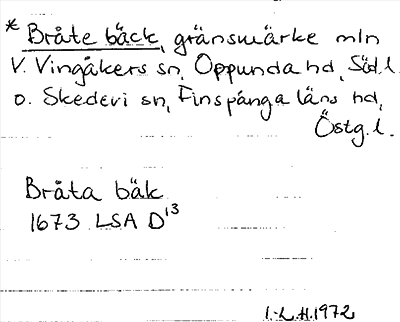 * Bråte bäck, gränsmärke mln
V. Vingåkers sn, Oppunda hd, Söd.l.
o. Skedevi sn, Finspånga läns hd,
Östg.l.
Bråta bäk
1673 LSA D¹³
I.-L.H. 1972